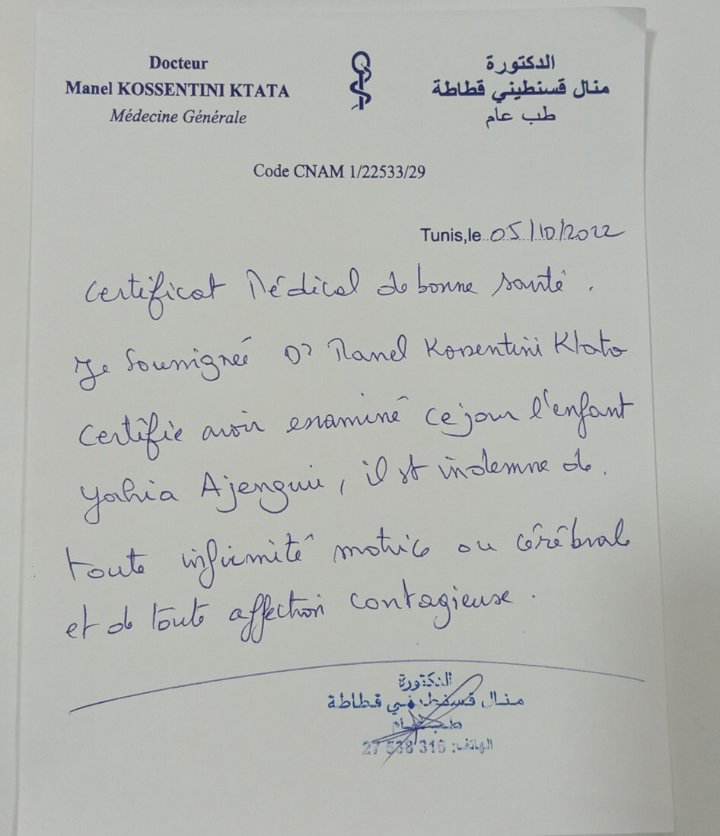 Docteur
Manel KOSSENTINI KTATA
Médecine Générale
الدكتورة
منال قسنطيني قطاطة
طب عام
Code CNAM 1/22533/29
Tunis,le 05/10/2022
Certificat Médical de bonne santé .
Je Soussignée Dr Manel Kossentini Ktata
Certifie avoir examiné ce jour l'enfant
Yahia Ajengui, il est indemne de
toute infirmité motrice ou cérébrale
et de toute affection contagieuse .
الدكتورة
منال قسنطيني قطاطة
طب عام
الهاتف: 27 538 316